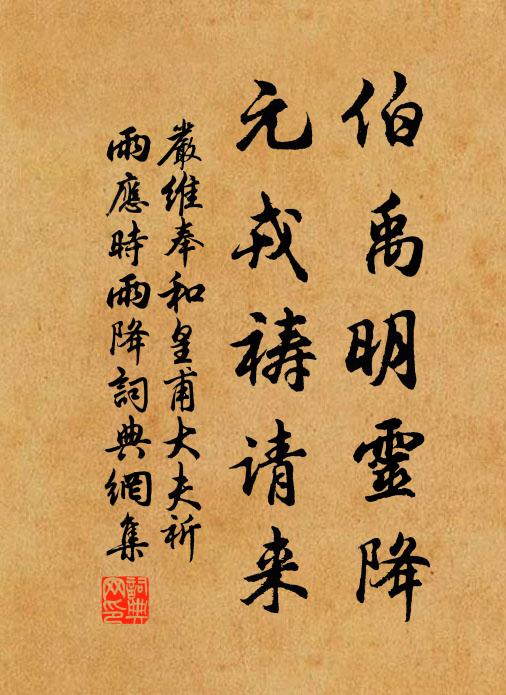 伯禹明靈降
元戎祷请来
嚴維奉和皇甫大夫祈
雨應時雨降詞典網集
詞典
网印